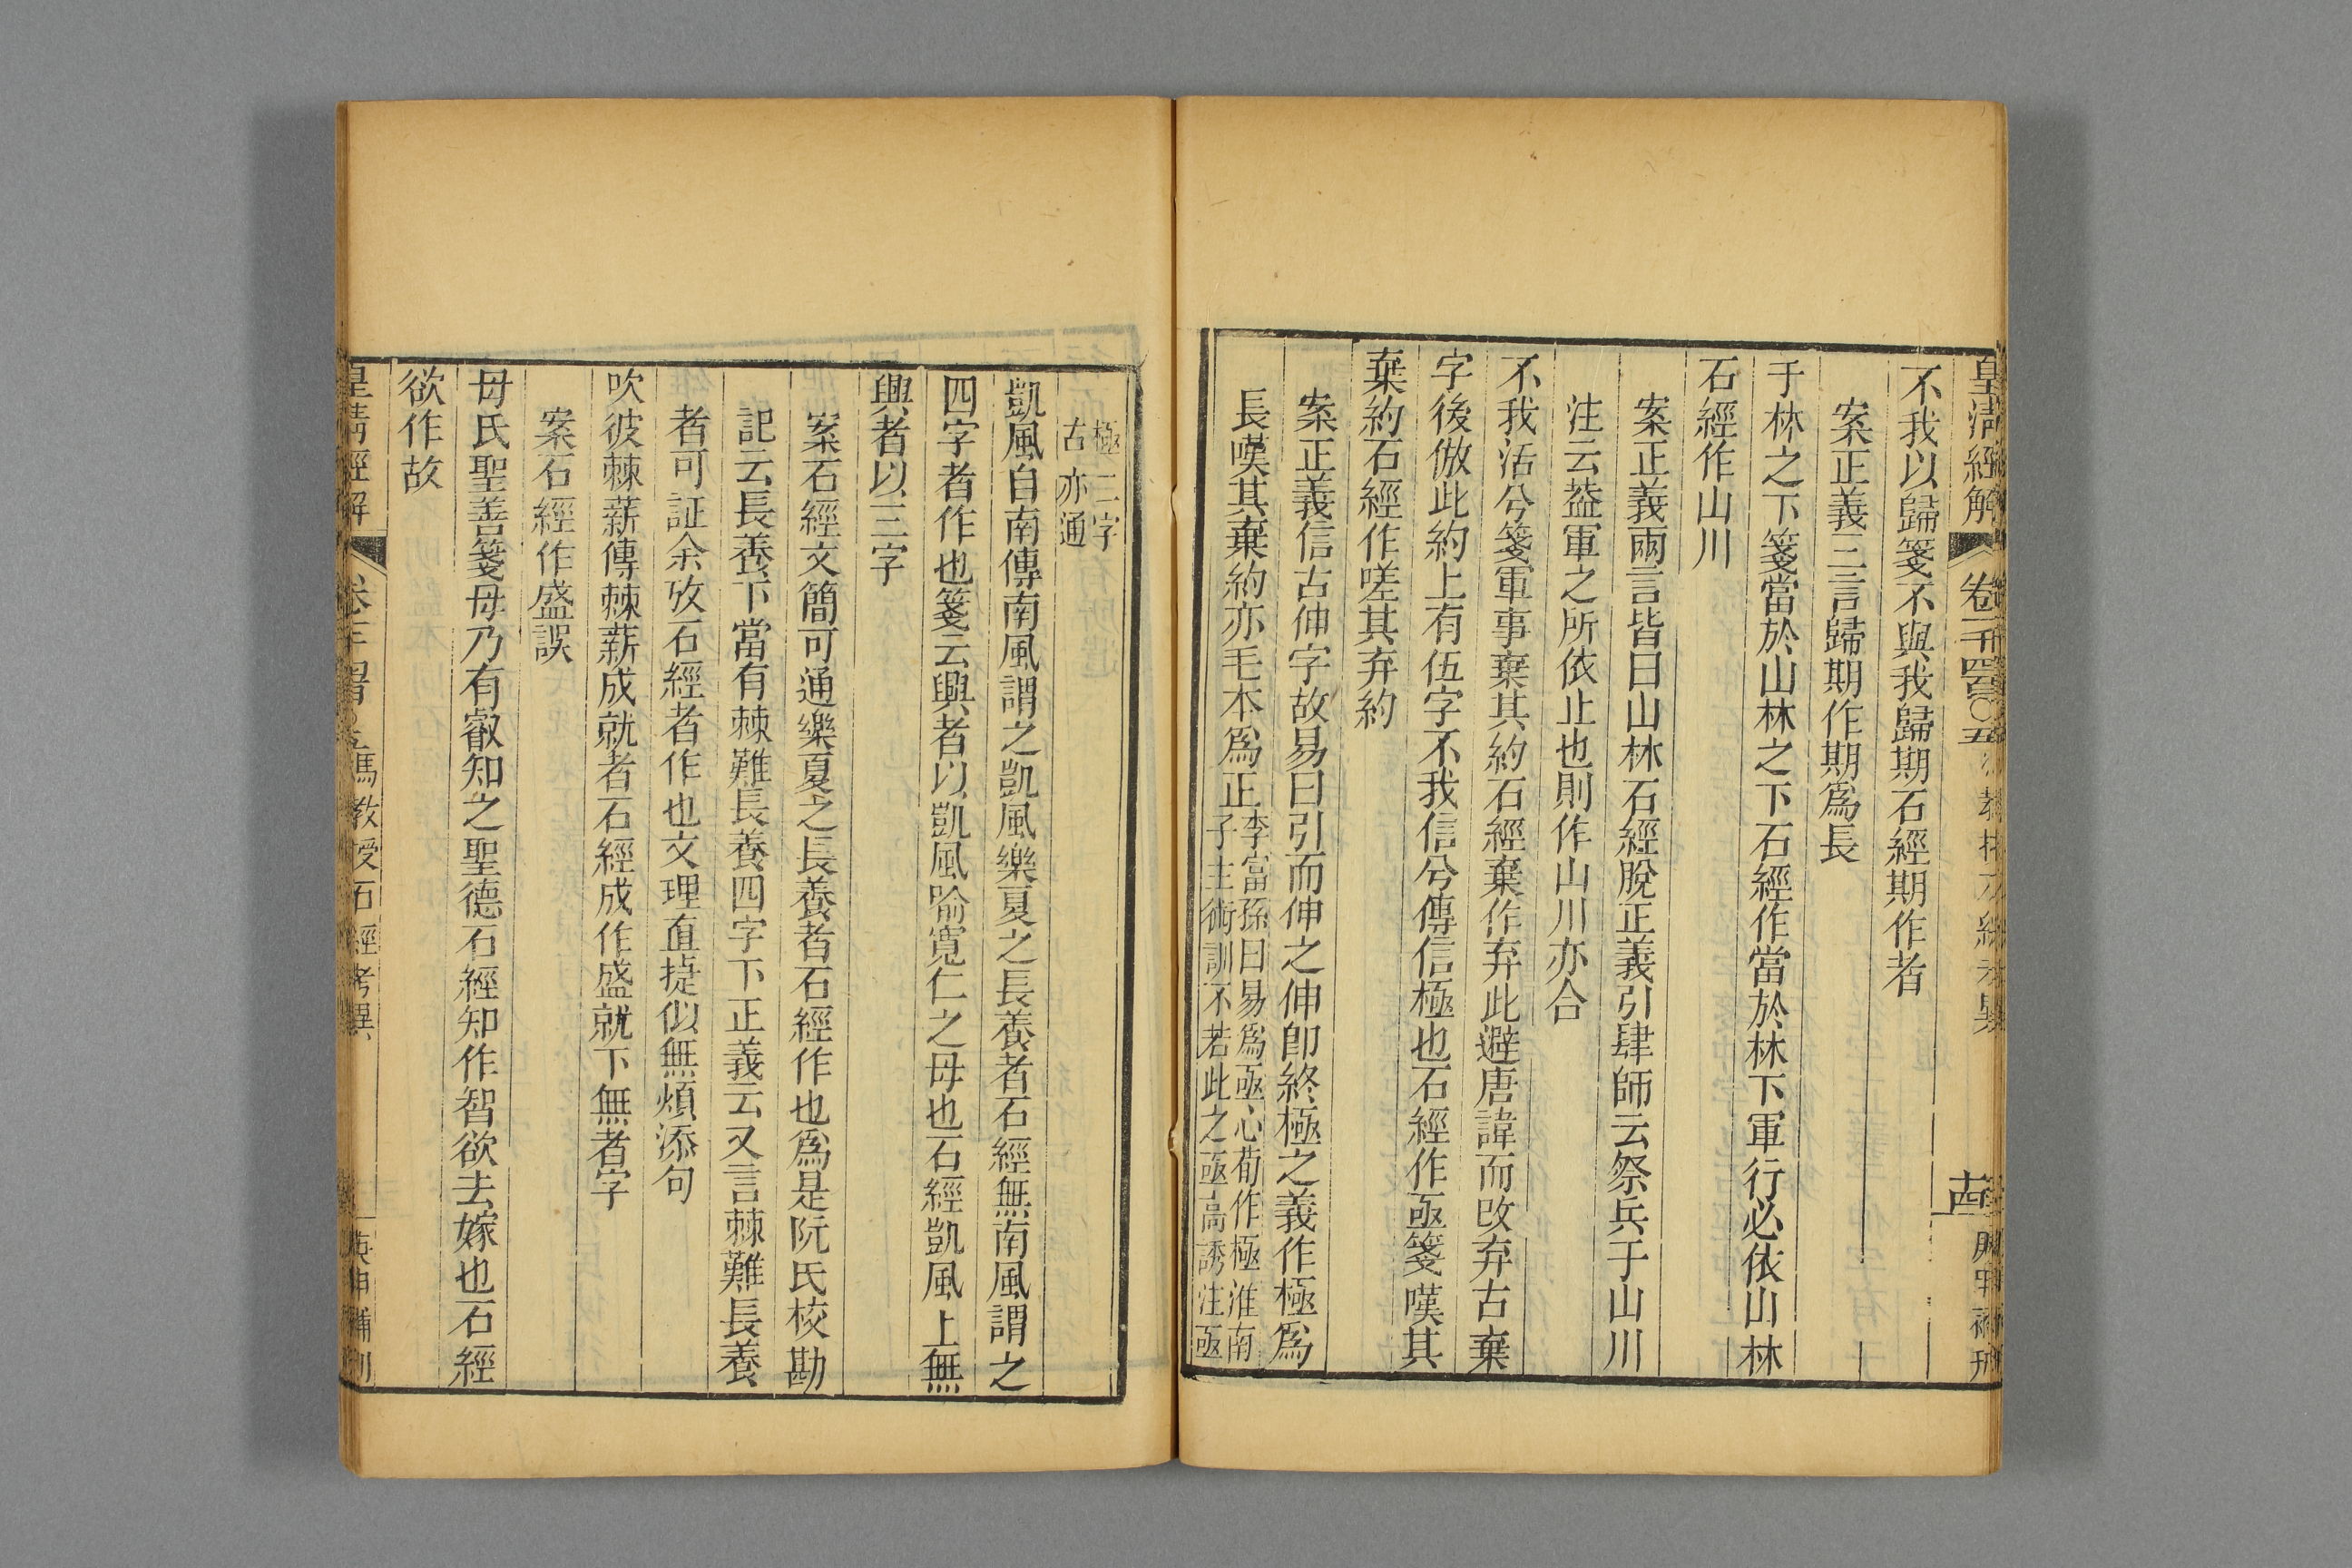 皇清經解
卷一千四百〇五
十四
不我以歸箋不與我歸期石經期作者
案正義三言歸期作期爲長
于林之下箋當於山林之下石經作當於林下軍行必依山林
石經作山川
案正義兩言皆曰山林石經脫正義引肆師云祭兵于山川
注云葢軍之所依止也則作山川亦合
不我活兮箋軍事棄其約石經棄作弃此避唐諱而改弃古棄
字後倣此約上有伍字不我信兮傳信極也石經作亟箋嘆其
棄約石經作嗟其弃約
案正義信古伸字故易曰引而伸之伸卽終極之義作極爲
長嘆其棄約亦毛本爲正
李富孫曰易爲亟心荀作極淮南
子主術訓不若此之亟高誘注亟
極二字
古亦通
凱風自南傳南風謂之凱風樂夏之長養者石經無南風謂之
四字者作也箋云興者以凱風喻寬仁之母也石經凱風上無
興者以三字
案石經文簡可通樂夏之長養者石經作也爲是阮氏校勘
記云長養下當有棘難長養四字下正義云又言棘難長養
者可証余攷石經者作也文理直㨗似無煩添句
吹彼棘薪傳棘薪成就者石經成作盛就下無者字
案石經作盛誤
母氏聖善箋母乃有叡知之聖德石經知作智欲去嫁也石經
欲作故
皇清經解
馮教授石經考異
庚申補刊